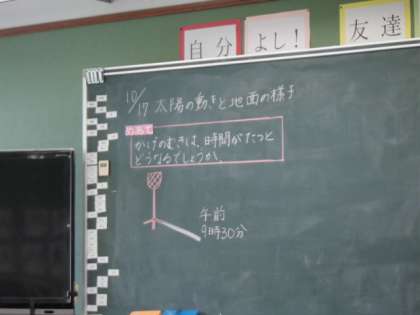 自分 よし！ 友達
10/17 太陽の動きと地面の様子
めあて
かげのむきは、時間がたつと
どうなるでしょうか。
午前
9時30分